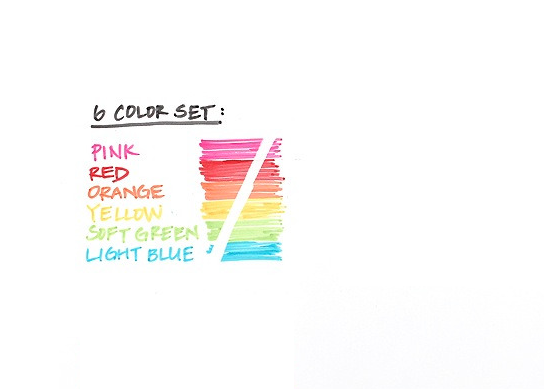 6 COLOR SET:
PINK
RED
ORANGE
YELLOW
SOFT GREEN
LIGHT BLUE